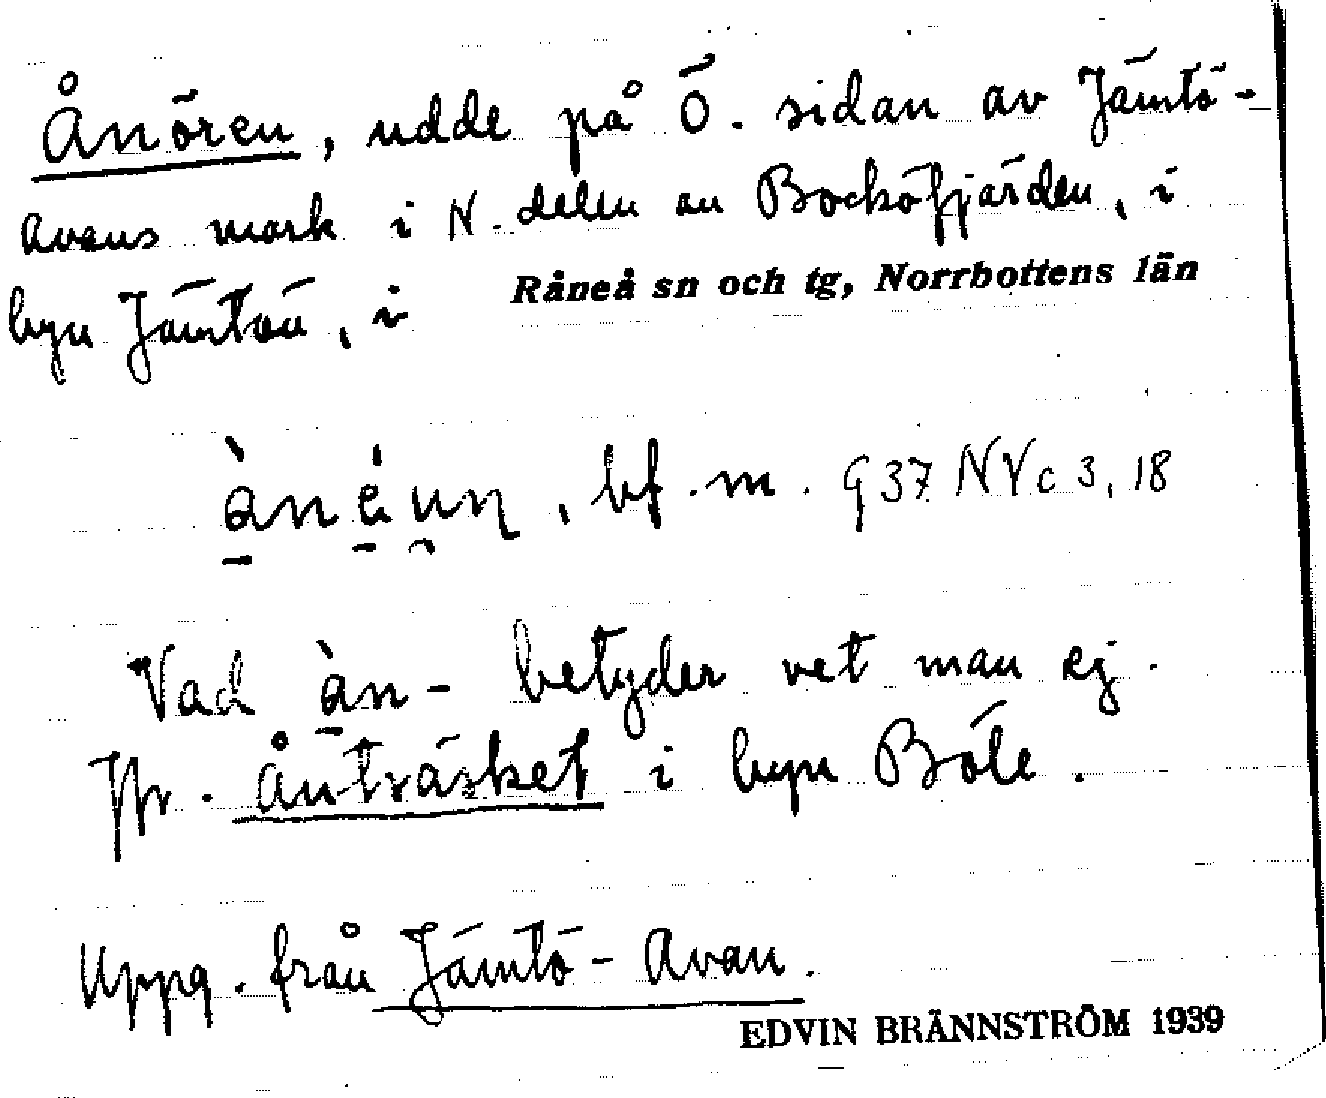 Ånören, udde på Ö. sidan av Jämtö-
avans mark i N. delen av Bocköfjärden, i
byn Jämtön, i Råneå sn och tg, Norrbottens län
bf. m. G37 NVc 3, 18
Vad àn- betyder vet man ej.
Jfr. Ånträsket i byn Böle.
Uppg. från Jämtö-Avan.
EDVIN BRÄNNSTRÖM 1939